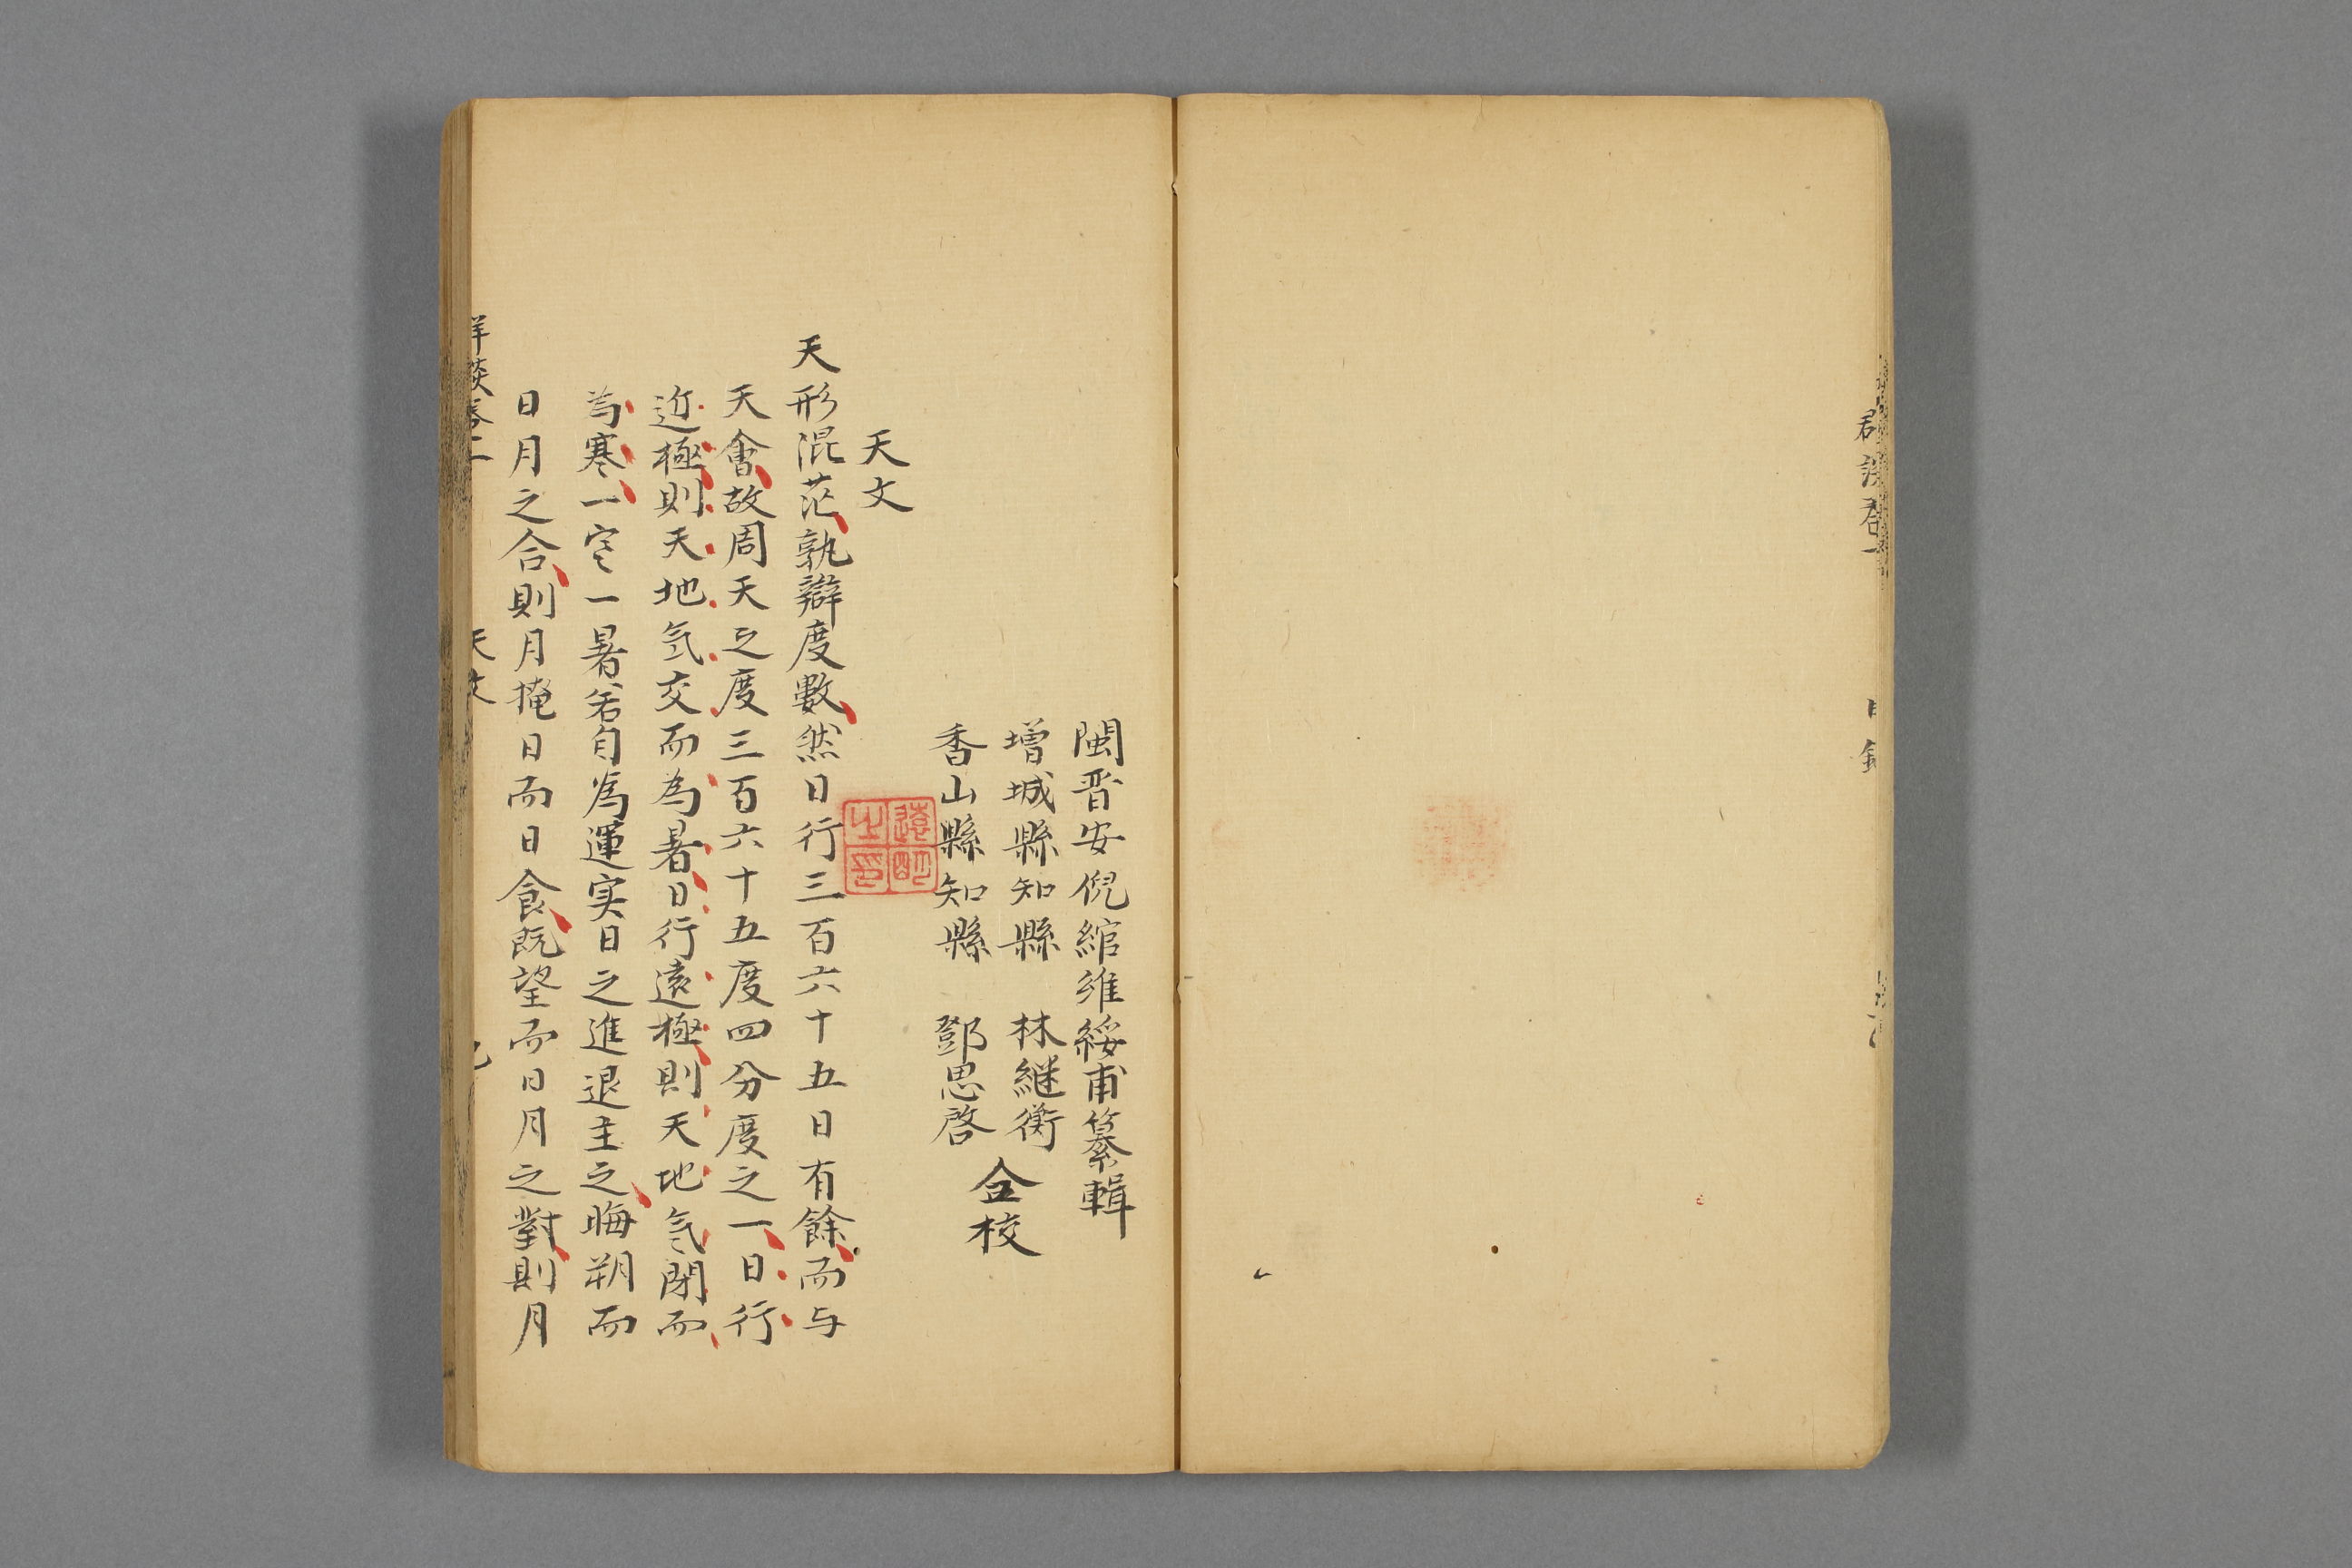 目錄
閩晉安倪綰維綏甫纂輯
增城縣知縣　林継衡
香山縣知縣　鄧思啓
仝校
天文
天形混茫孰辯度數然日行三百六十五日有餘而与
天會故周天之度三百六十五度四分度之一日行
近極則天地氣交而為暑日行遠極則天地氣閉而
為寒一寒一暑若自為運实日之進退主之晦朔而
日月之合則月掩日而日食既望而日月之對則月
卷二
天文